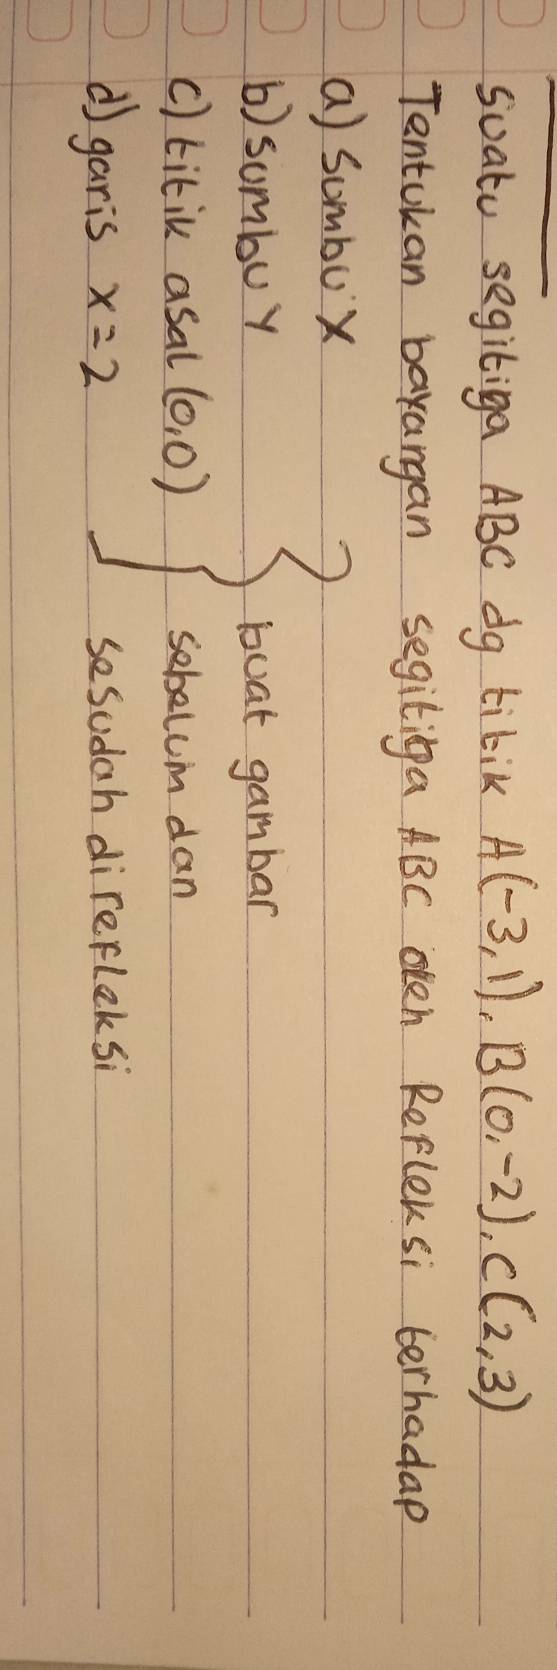 Suatu segitiga ABC dg titik A(-3,1), B(0,-2), C(2,3)
Tentukan bayangan segitiga ABC oleh Refleksi terhadap
a) Sumbu X
b) sumbu Y
c) titik asal (0,0)
d) garis x=2
buat gambar
sebelum dan
sesudah direfleksi